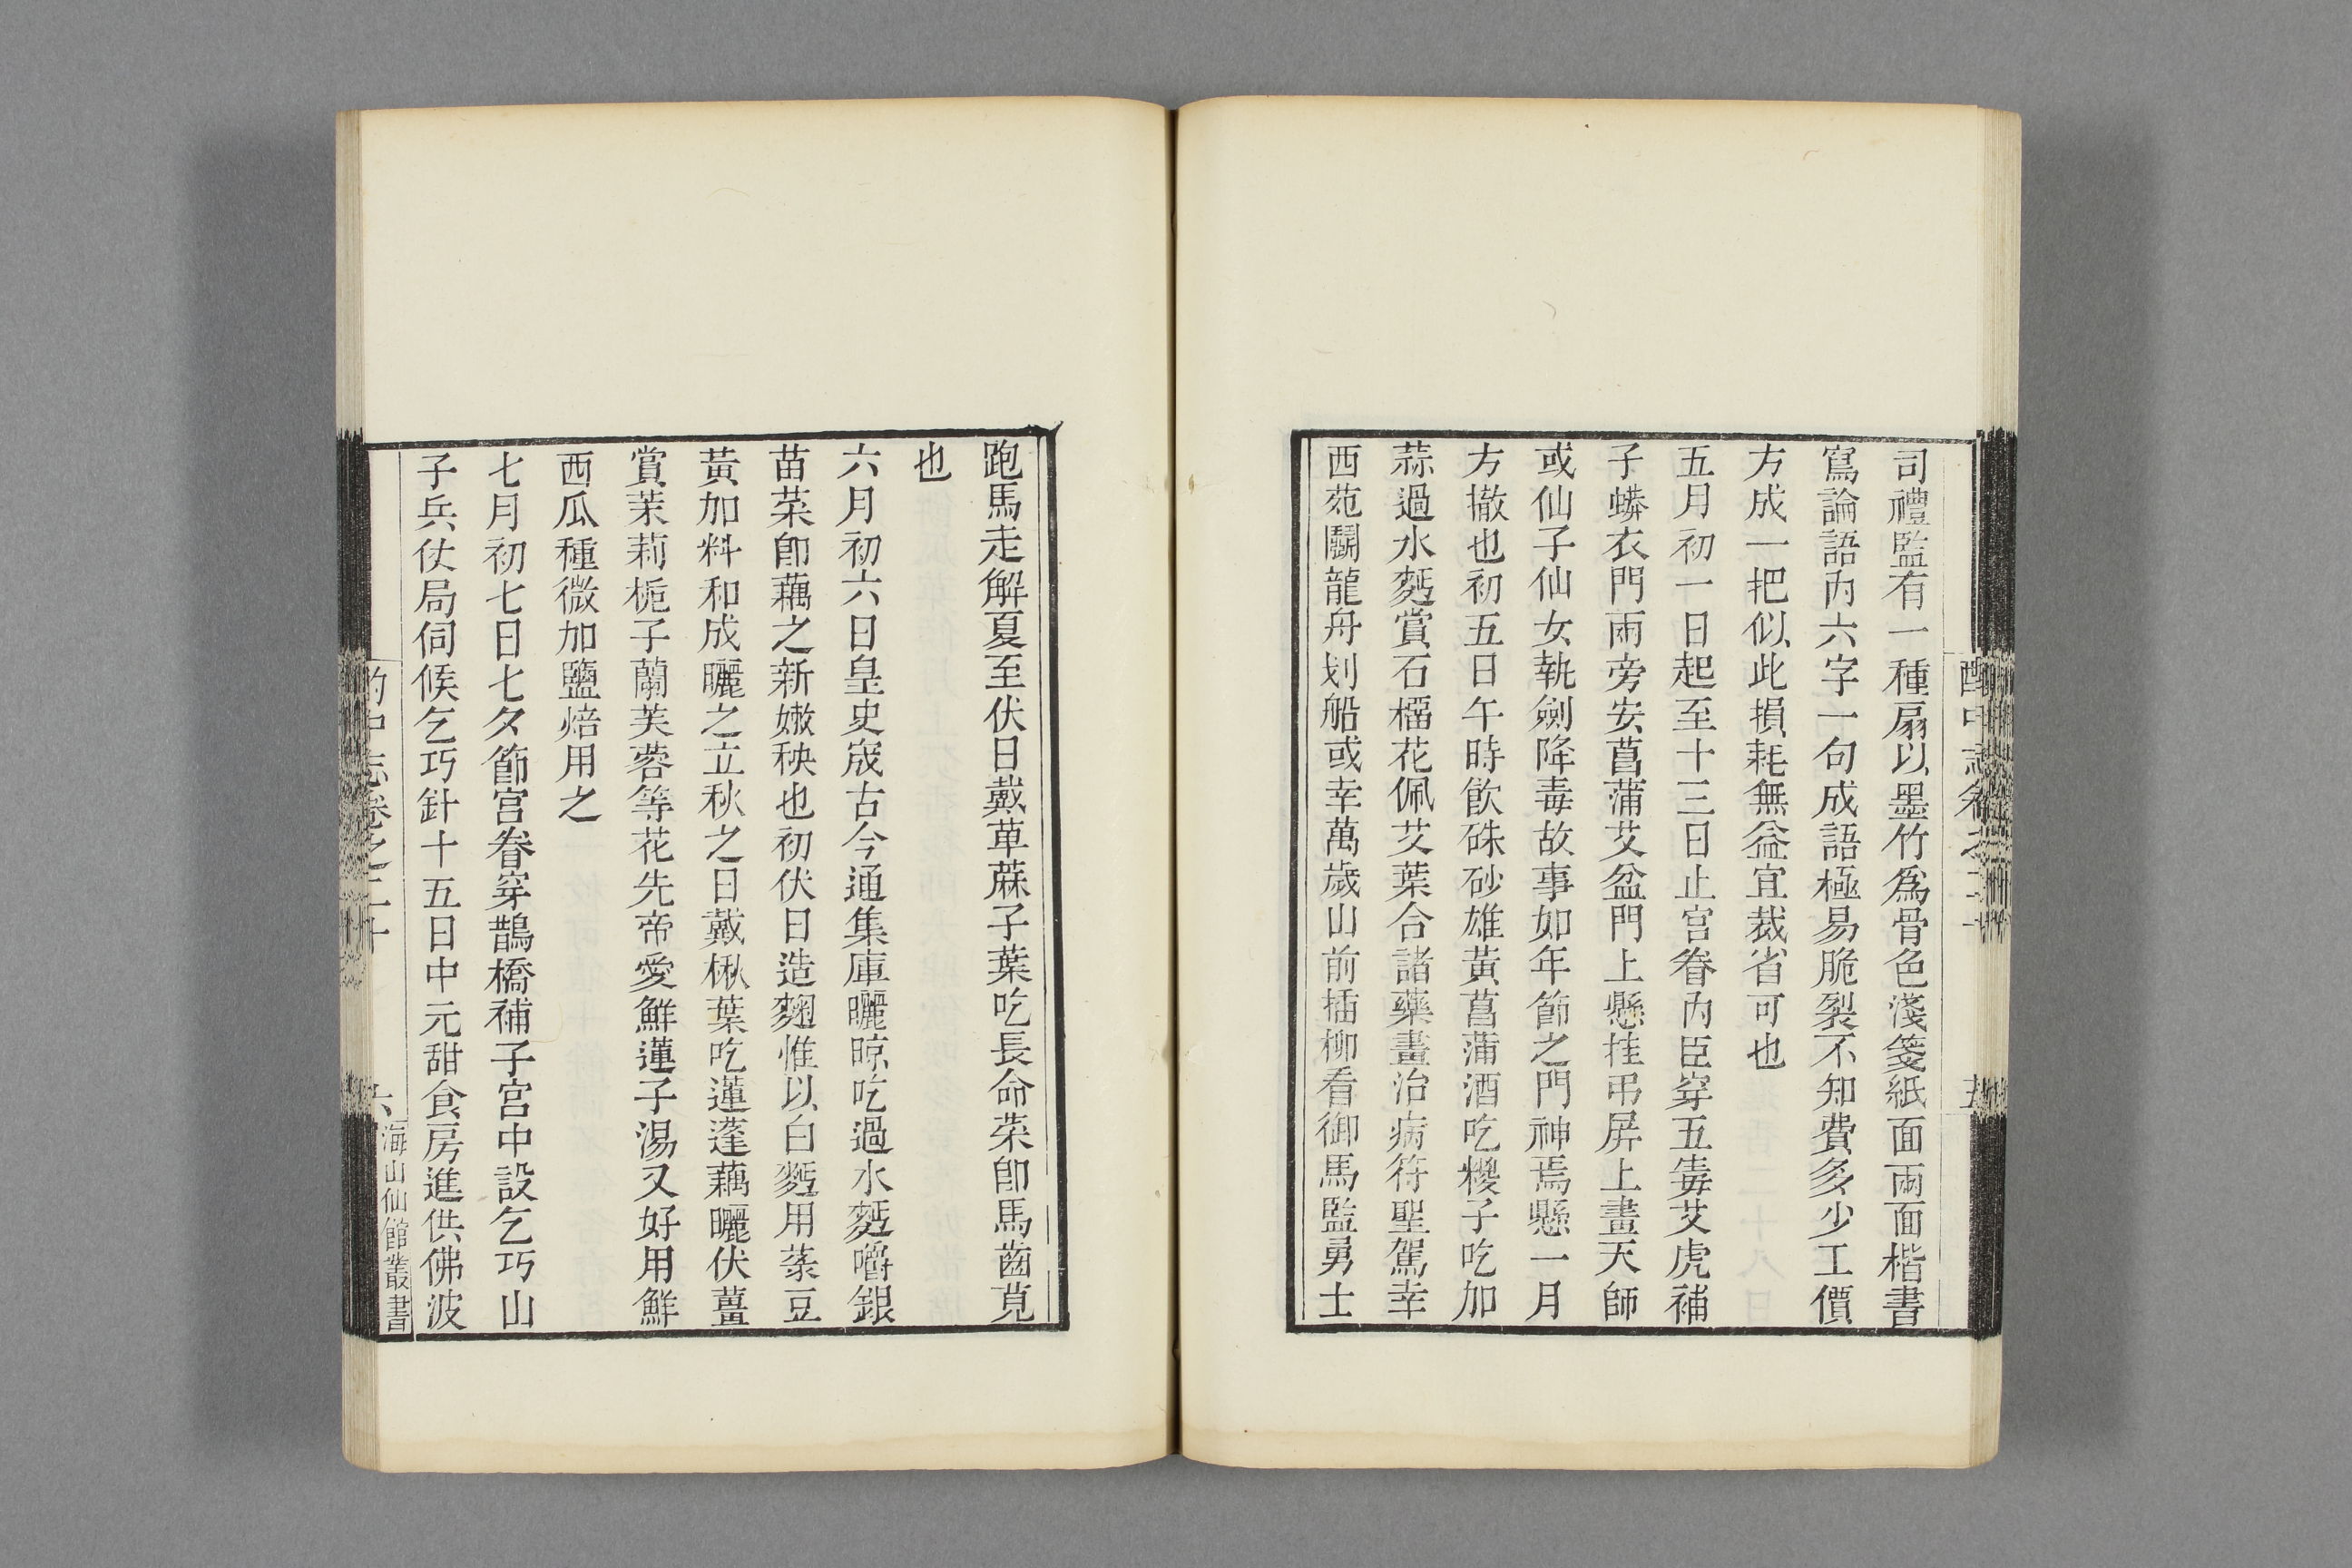 司禮監有一種扇以墨竹爲骨色淺箋紙面兩面楷書
寫論語內六字一句成語極易脆裂不知費多少工價
方成一把似此損耗無益宜裁省可也
五月初一日起至十三日止宮眷內臣穿五毒艾虎補
子蟒衣門兩旁安菖蒲艾盆門上懸挂弔屏上畫天師
或仙子仙女執劍降毒故事如年節之門神焉懸一月
方撤也初五日午時飲硃砂雄黃菖蒲酒吃糉子吃加
蒜過水麪賞石榴花佩艾葉合諸藥畫治病符聖駕幸
西苑鬭龍舟划船或幸萬歲山前插柳看御馬監勇士
跑馬走解夏至伏日戴萆蔴子葉吃長命菜卽馬齒莧
也
六月初六日皇史宬古今通集庫曬晾吃過水麪嚼銀
苗菜卽藕之新嫩秧也初伏日造麴惟以白麪用菉豆
黃加料和成曬之立秋之日戴楸葉吃蓮蓬藕曬伏薑
賞茉莉梔子蘭芙蓉等花先帝愛鮮蓮子湯又好用鮮
西瓜種微加鹽焙用之
七月初七日七夕節宮眷穿鵲橋補子宮中設乞巧山
子兵仗局伺候乞巧針十五日中元甜食房進供佛波
酌中志卷之二十
六
海山仙館叢書